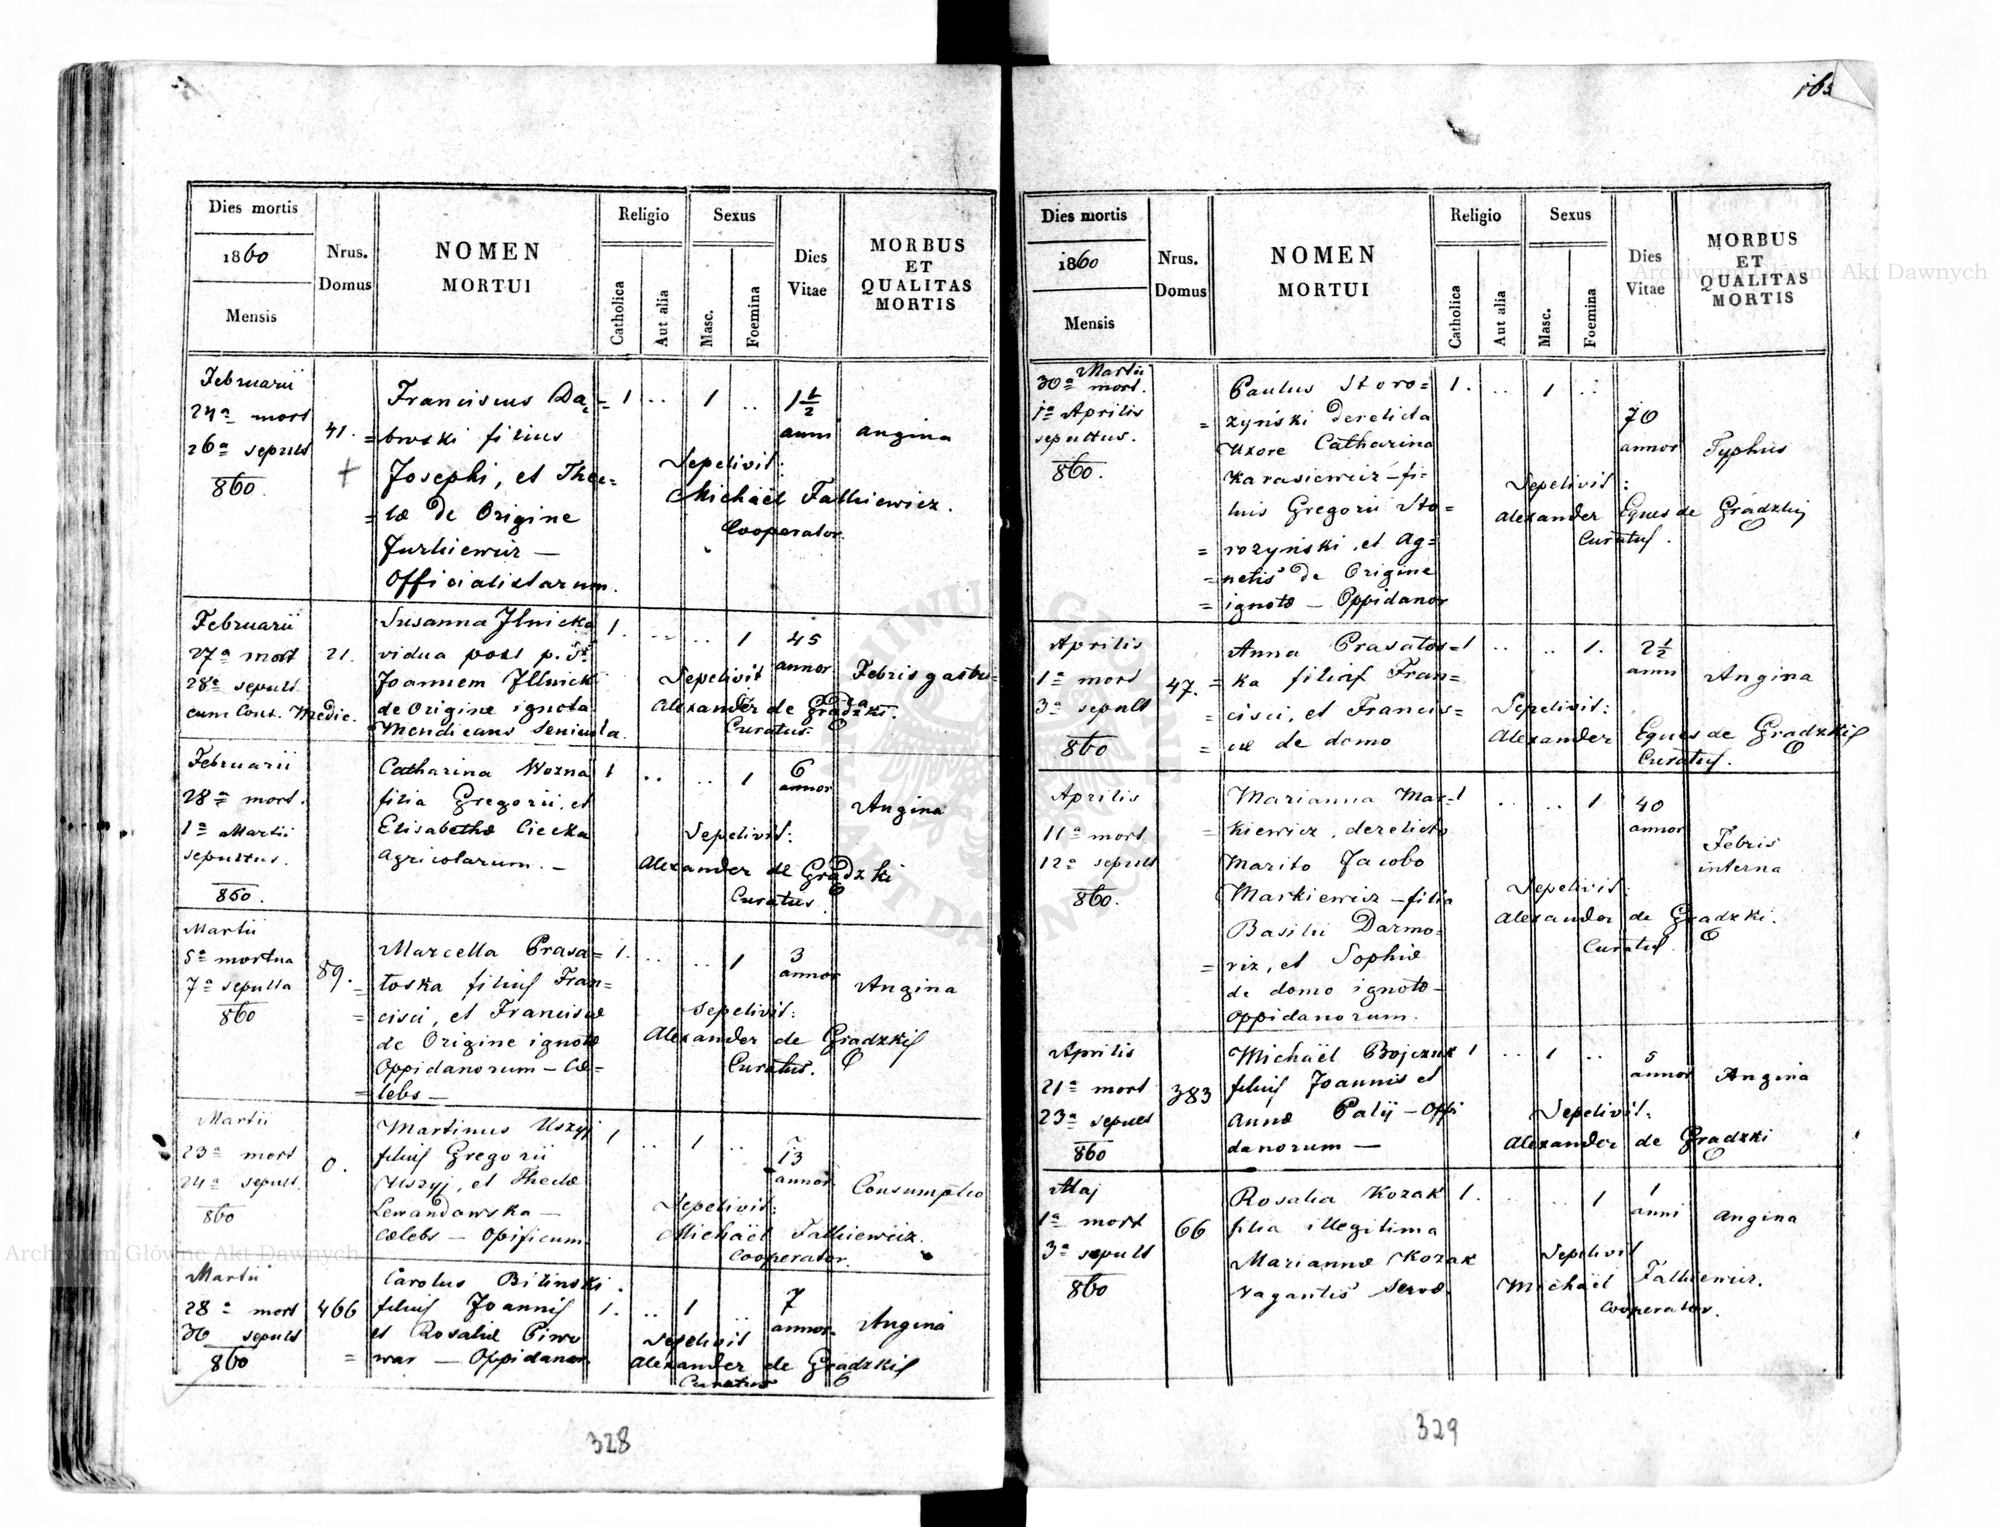 163
Dies mortis
1860
Mensis
Nrus.
Domus
NOMEN
MORTUI
Religio
Catholica
Aut alia
Sexus
Masc.
Foemina
Dies
Vitae
MORBUS
ET
QUALITAS
MORTIS
Februarii
24a mort
26a sepult
860.
41.
Franciscus Da=
=browski filius
Josephi, et Thec=
=læ de Origine
Jurkiewicz —
Officialistarum.
1 .. 1 ..
1 1/2
anni
angina
Sepelivit:
Michaël Falkiewicz.
Cooperator
Februarii
27a mort
28a sepult.
cum Cons. Medic.
21.
Susanna Ilnicka
vidua post p.
Joannem Illnicki
de Origine ignota
Mendicans
1. .. .. 1
45
annor
Febris gastri-
ca
Sepelivit
Alexander de Gradzki.
Curatus.
Februarii
28a mort.
1a Martii
sepultus.
860.
Catharina Wozna
filia Gregorii, et
Elisabethæ Ciecka
Agricolarum. —
1 .. .. 1
6
annor
Angina
Sepelivit:
Alexander de Gradzki
Curatus.
Martii
5a mortua
7a sepulta
860
89.
Marcella Prasa=
=toska filius Fran=
=cisci, et Francisæ
de Origine ignotæ
Oppidanorum — Cæ=
=lebs —
1. .. .. 1
3
annor
Angina
Sepelivit:
Alexander de Gradzki
Curatus.
Martii
23a mort
24a sepult.
860
0.
Martinus Uszyj
filius Gregorii
Uszyj, et Theclæ
Lewandowska —
cælebs — Opificum
1 .. 1 ..
13
annor
Consumptio
Sepelivit:
Michaël Falkiewicz.
Cooperator.
Martii
28a mort
30 sepult
860
466
Carolus Bilinski
filius Joannis
et Rosaliæ Piwo
=war — Oppidanor
1. .. 1 ..
7
annor
Angina
Sepelivit
Alexander de Gradzki
Curatus
328
Dies mortis
1860
Mensis
Nrus.
Domus
NOMEN
MORTUI
Religio
Catholica
Aut alia
Sexus
Masc.
Foemina
Dies
Vitae
MORBUS
ET
QUALITAS
MORTIS
Martii
30a mort.
1a Aprilis
sepultus.
860.
Paulus Storo=
=zyński derelicta
Uxore Catharina
Karasiewicz — fi-
lius Gregorii Sto=
=rozyński, et Ag=
=netis de Origine
=ignotæ — Oppidanor
1. .. 1 ..
70
annor
Typhus
Sepelivit:
Alexander Eques de Gradzki
Curatus.
Aprilis
1a mort
3a sepult
860
47.
Anna Prasatos=
=ka filius Fran=
=cisci, et Francis=
=cæ de domo
1 .. .. 1.
2 1/2
anni
Angina
Sepelivit:
Alexander Eques de Gradzki
Curatus.
Aprilis
11a mort
12a sepult
860.
Marianna Mar=
=kiewicz, derelicto
Marito Jacobo
Markiewicz — filia
Basilii Darmo=
=riz, et Sophiæ
de domo ignoto —
Oppidanorum.
1 .. .. 1
40
annor
Febris
interna
Sepelivit:
Alexander de Gradzki.
Curatus
Aprilis
21a mort
23a sepult
860
383
Michaël Bojczuk
filius Joannis et
Annæ Palij — Oppi
danorum —
1 .. 1 ..
5
annor
Angina
Sepelivit:
Alexander de Gradzki
Maj
1a mort
3a sepult
860
66
Rosalia Kozak
filia illegitima
Mariannæ Kozak
vagantis servæ.
1. .. .. 1
1
anni
angina
Sepelivit
Michaël Falkiewicz.
Cooperator.
329
Archiwum Główne Akt Dawnych
Archiwum Główne Akt Dawnych
ARCHIWUM GŁÓWNE AKT DAWNYCH